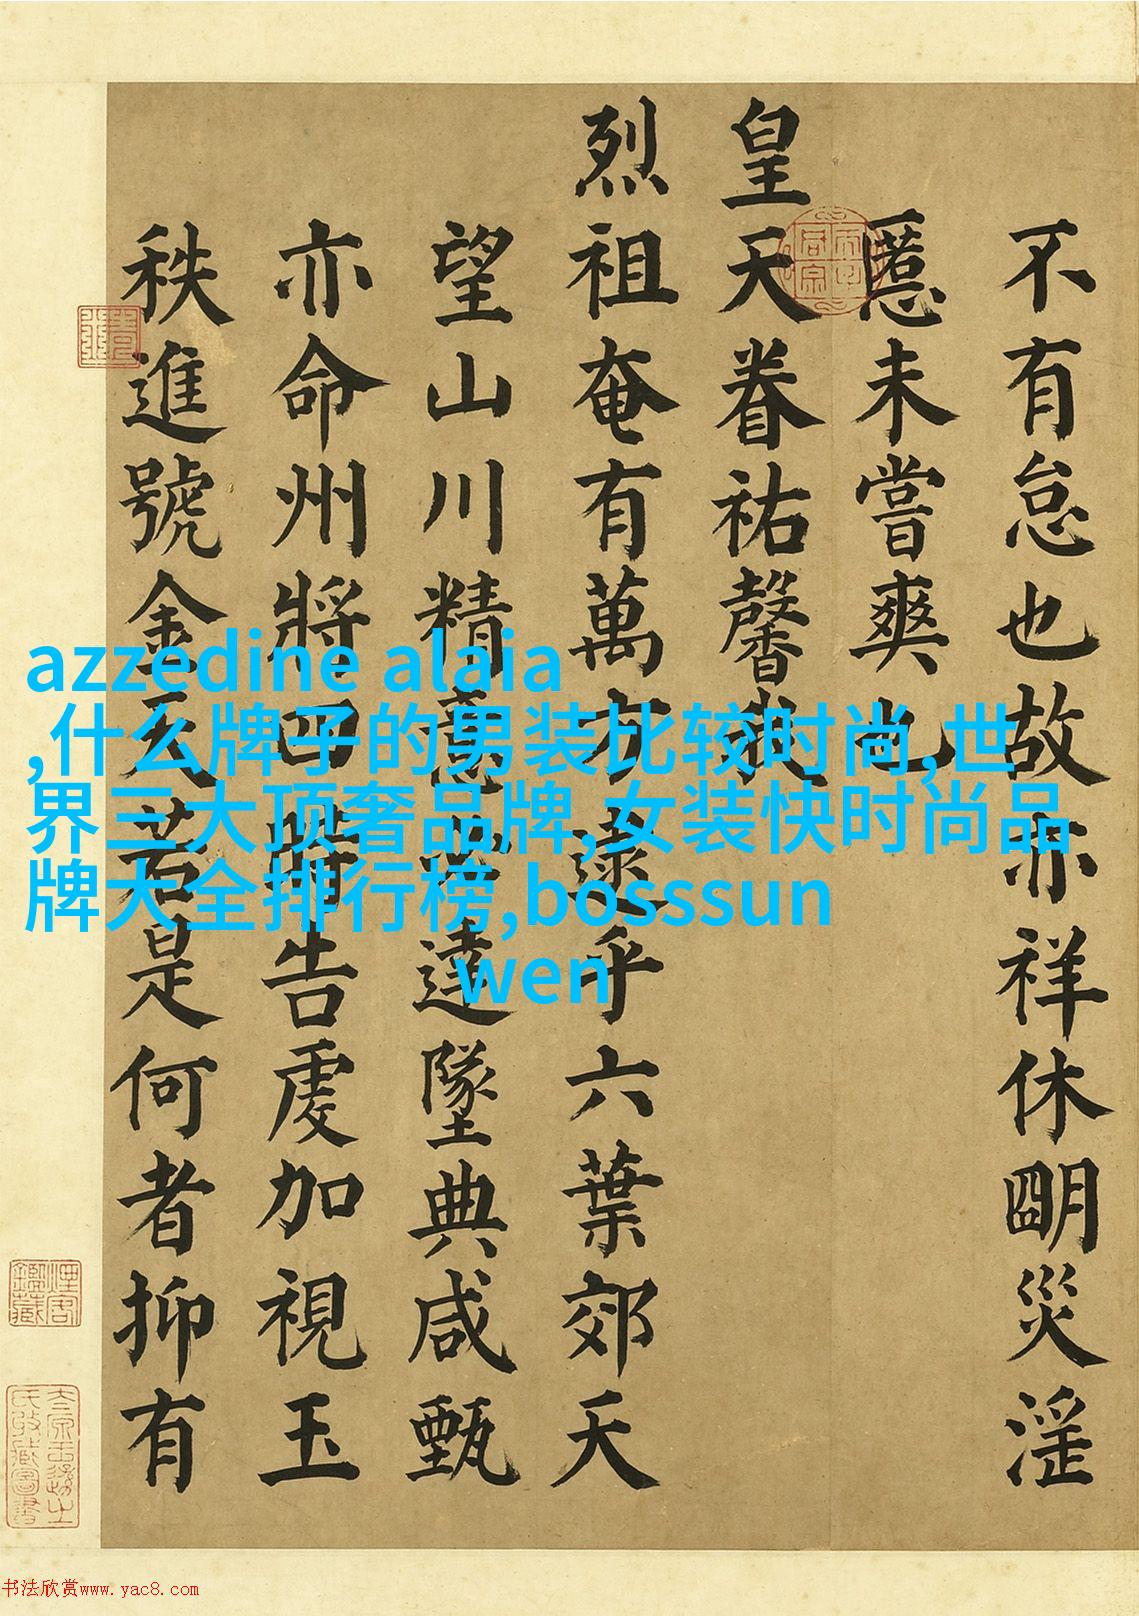 不有怠也故亦祥休朙災淫
慝未嘗爽也
皇天眷祐馨我
烈祖奄有萬方逮乎六葉郊天
望山川精意必達墜典咸甄
亦命州將四時告虔加視王
秩進號金天若是何者抑有
azzedine alaia
,什么牌子的男装比较时尚,世
界三大顶奢品牌,女装快时尚品
牌大全排行榜,bosssun
wen
书法欣赏www.yac8.com